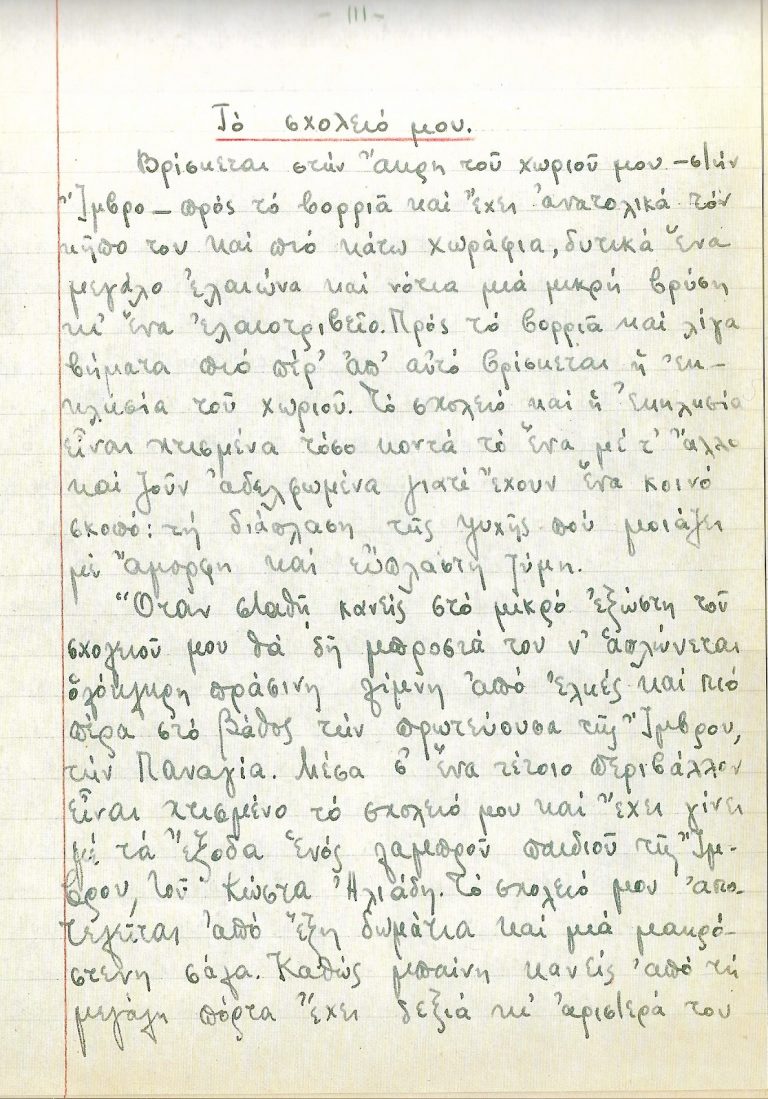 - 111 -
Τό σχολειό μου.
Βρίσκεται στήν ἄκρη τοῦ χωριοῦ μου — στήν
Ἴμβρο — πρός τό βορριᾶ καί ἔχει ἀνατολικά τόν
κῆπο του καί πιό κάτω χωράφια, δυτικά ἕνα
μεγάλο ἐλαιώνα καί νότια μιά μικρή βρύση
κι' ἕνα ἐλαιοτριβεῖο. Πρός τό βορριᾶ καί λίγα
βήματα πιό πέρ' ἀπ' αὐτό βρίσκεται ἡ ἐκ-
κλησία τοῦ χωριοῦ. Τό σχολειό καί ἡ Ἐκκλησία
εἶναι χτισμένα τόσο κοντά τό ἕνα μέ τ' ἄλλο
καί ζοῦν ἀδελφωμένα γιατί ἔχουν ἕνα κοινό
σκοπό: τή διάπλαση τῆς ψυχῆς πού μοιάζει
μέ ἄμορφη καί εὔπλαστη ζύμη.
Ὅταν σταθῆ κανείς στό μικρό ἐξώστη τοῦ
σχολειοῦ μου θά δῆ μπροστά του ν' ἁπλώνεται
ὁλόκληρη πράσινη λίμνη ἀπό ἐλιές καί πιό
πέρα στό βάθος τήν πρωτεύουσα τῆς Ἴμβρου,
τήν Παναγία. Μέσα σ' ἕνα τέτοιο περιβάλλον
εἶναι χτισμένο τό σχολειό μου καί ἔχει γίνει
μέ τά ἔξοδα ἑνός λαμπροῦ παιδιοῦ τῆς Ἴμ-
βρου, τοῦ Κώστα Ἠλιάδη. Τό σχολειό μου ἀπο-
τελεῖται ἀπό ἕξη δωμάτια καί μιά μακρό-
στενη σάλα. Καθώς μπαίνη κανείς ἀπό τή
μεγάλη πόρτα ἔχει δεξιά κι' ἀριστερά του